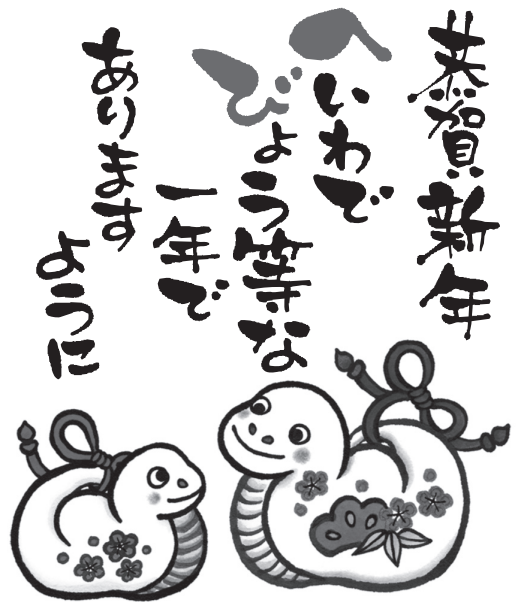 恭賀新年
へいわで
びょう等な
一年で
あります
ように